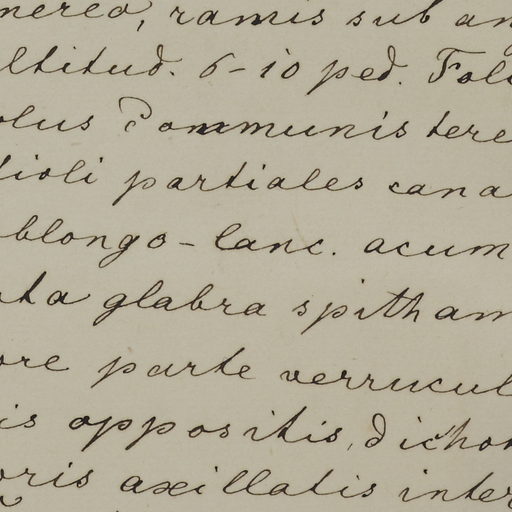 nereo, ramis sub an
ltitud. 6-10 ped. Foli
olus Communis tere
tioli partiales cana
blongo-lanc. acum
ata glabra spitham
ore parte verrucul
is oppositis, dichot
oris axillatis inter